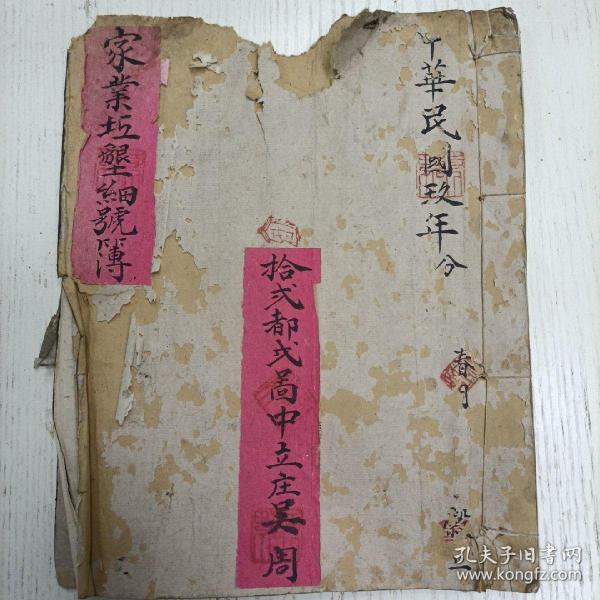 中華民國玖年分
春月
拾弍都弍啚中立庄吴周
家業坵墾細號簿
孔夫子旧书网
www.kongfz.com